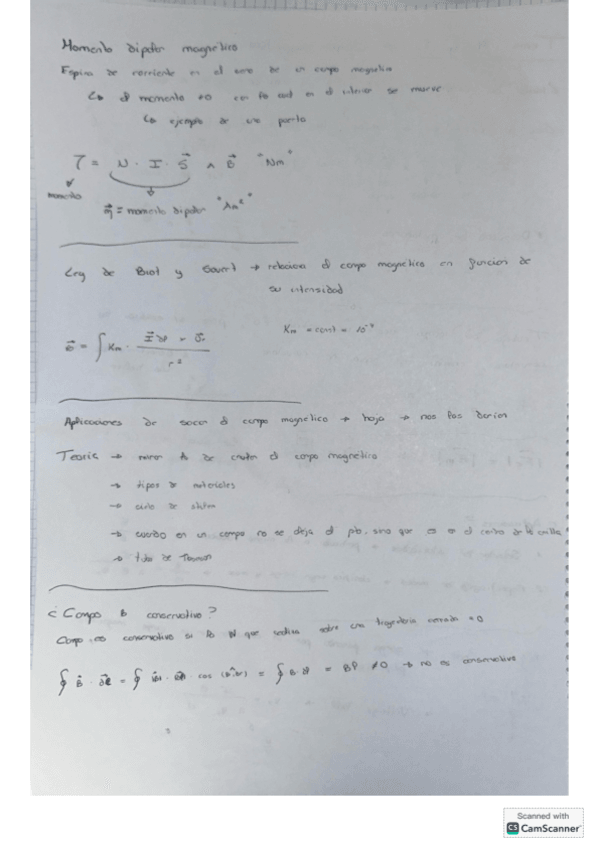 Momento dipolar magnético
Espira de corriente en el seno de un campo magnético
↳ el momento ≠0 con lo cual en el interior se mueve
↳ ejemplo de una puerta
τ = N · I · S⃗ ∧ B⃗ "Nm"
momento
m⃗ = momento dipolar "Am²"
Ley de Biot y Savart → relaciona el campo magnético en función de
su intensidad
Km = const = 10⁻⁷
B⃗ = ∫ Km ·
r²
Aplicaciones de sacar el campo magnético → hoja → nos las darían
Teoría → de crear el campo magnético
→ tipos de materiales
→ ciclo de
→ cuando en un campo no se deja el sino que es en el centro de la
→ de
¿Campo B conservativo?
Campo es conservativo si la W que realiza sobre una trayectoria cerrada =0
∮ B⃗ · dl⃗ = ∮ |B| · |dl| cos = ∮ B · dl = Bl ≠0 → no es conservativo
Scanned with
CS CamScanner